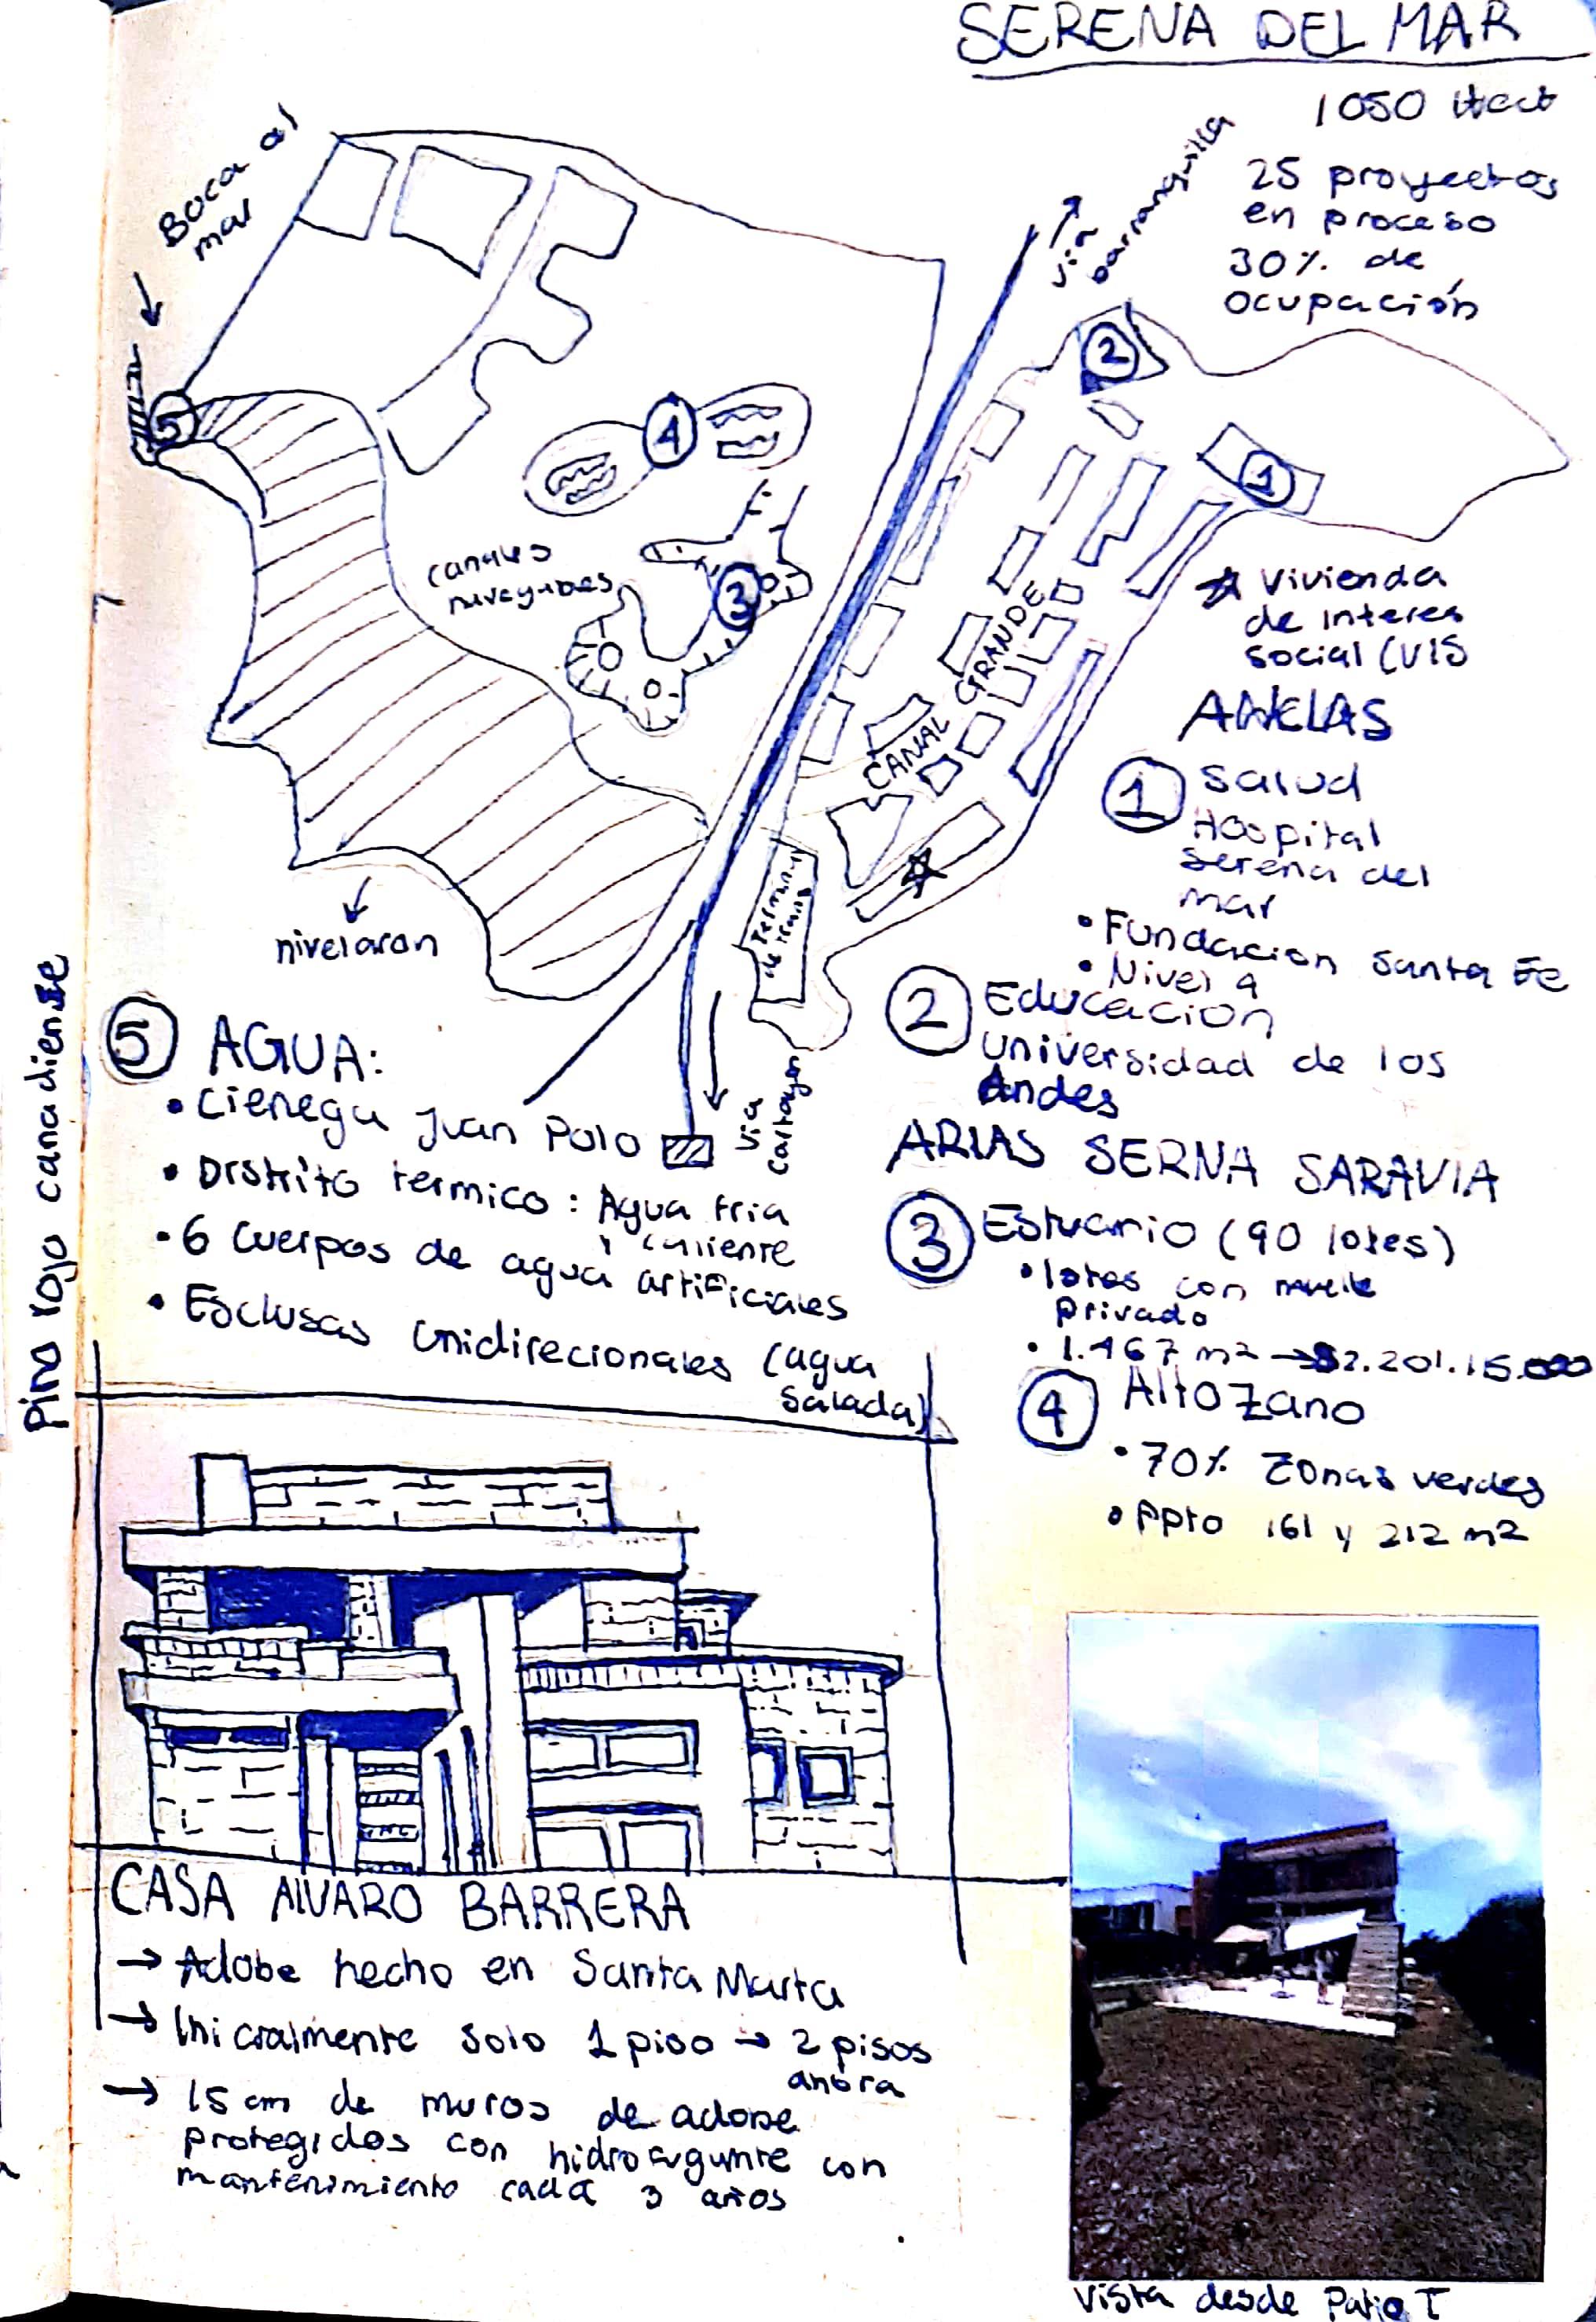 SERENA DEL MAR
1050 Hect
25 proyectos
en proceso
30% de
ocupación
Boca al
mar
via
barranquilla
2
1
5
4
3
canales
navegables
CANAL GRANDE
Terminal
de trans
nivelaron
via
Cartagen
Vivienda
de interes
social (VIS
ANCLAS
1 Salud
Hospital
Serena del
mar
• Fundacion Santa Fe
• Nivel 4
2 Educacion
Universidad de los
Andes
ARIAS SERNA SARAVIA
3 Estuario (90 lotes)
• lotes con muelle
privado
• 1.467 m2 → $2.201.15.000
4 Altozano
• 70% Zonas verdes
• Ppto 161 y 212 m2
5 AGUA:
• Cienega Juan Polo
• Distrito termico: Agua fria
y caliente
• 6 Cuerpos de agua artificiales
• Esclusas Unidirecionales (agua
salada)
Pino rojo canadiense
CASA ALVARO BARRERA
→ Adobe hecho en Santa Marta
→ Inicialmente solo 1 piso → 2 pisos
ahora
→ 15 cm de muros de adobe
protegidos con hidrofugante con
mantenimiento cada 3 años
Vista desde Patio T